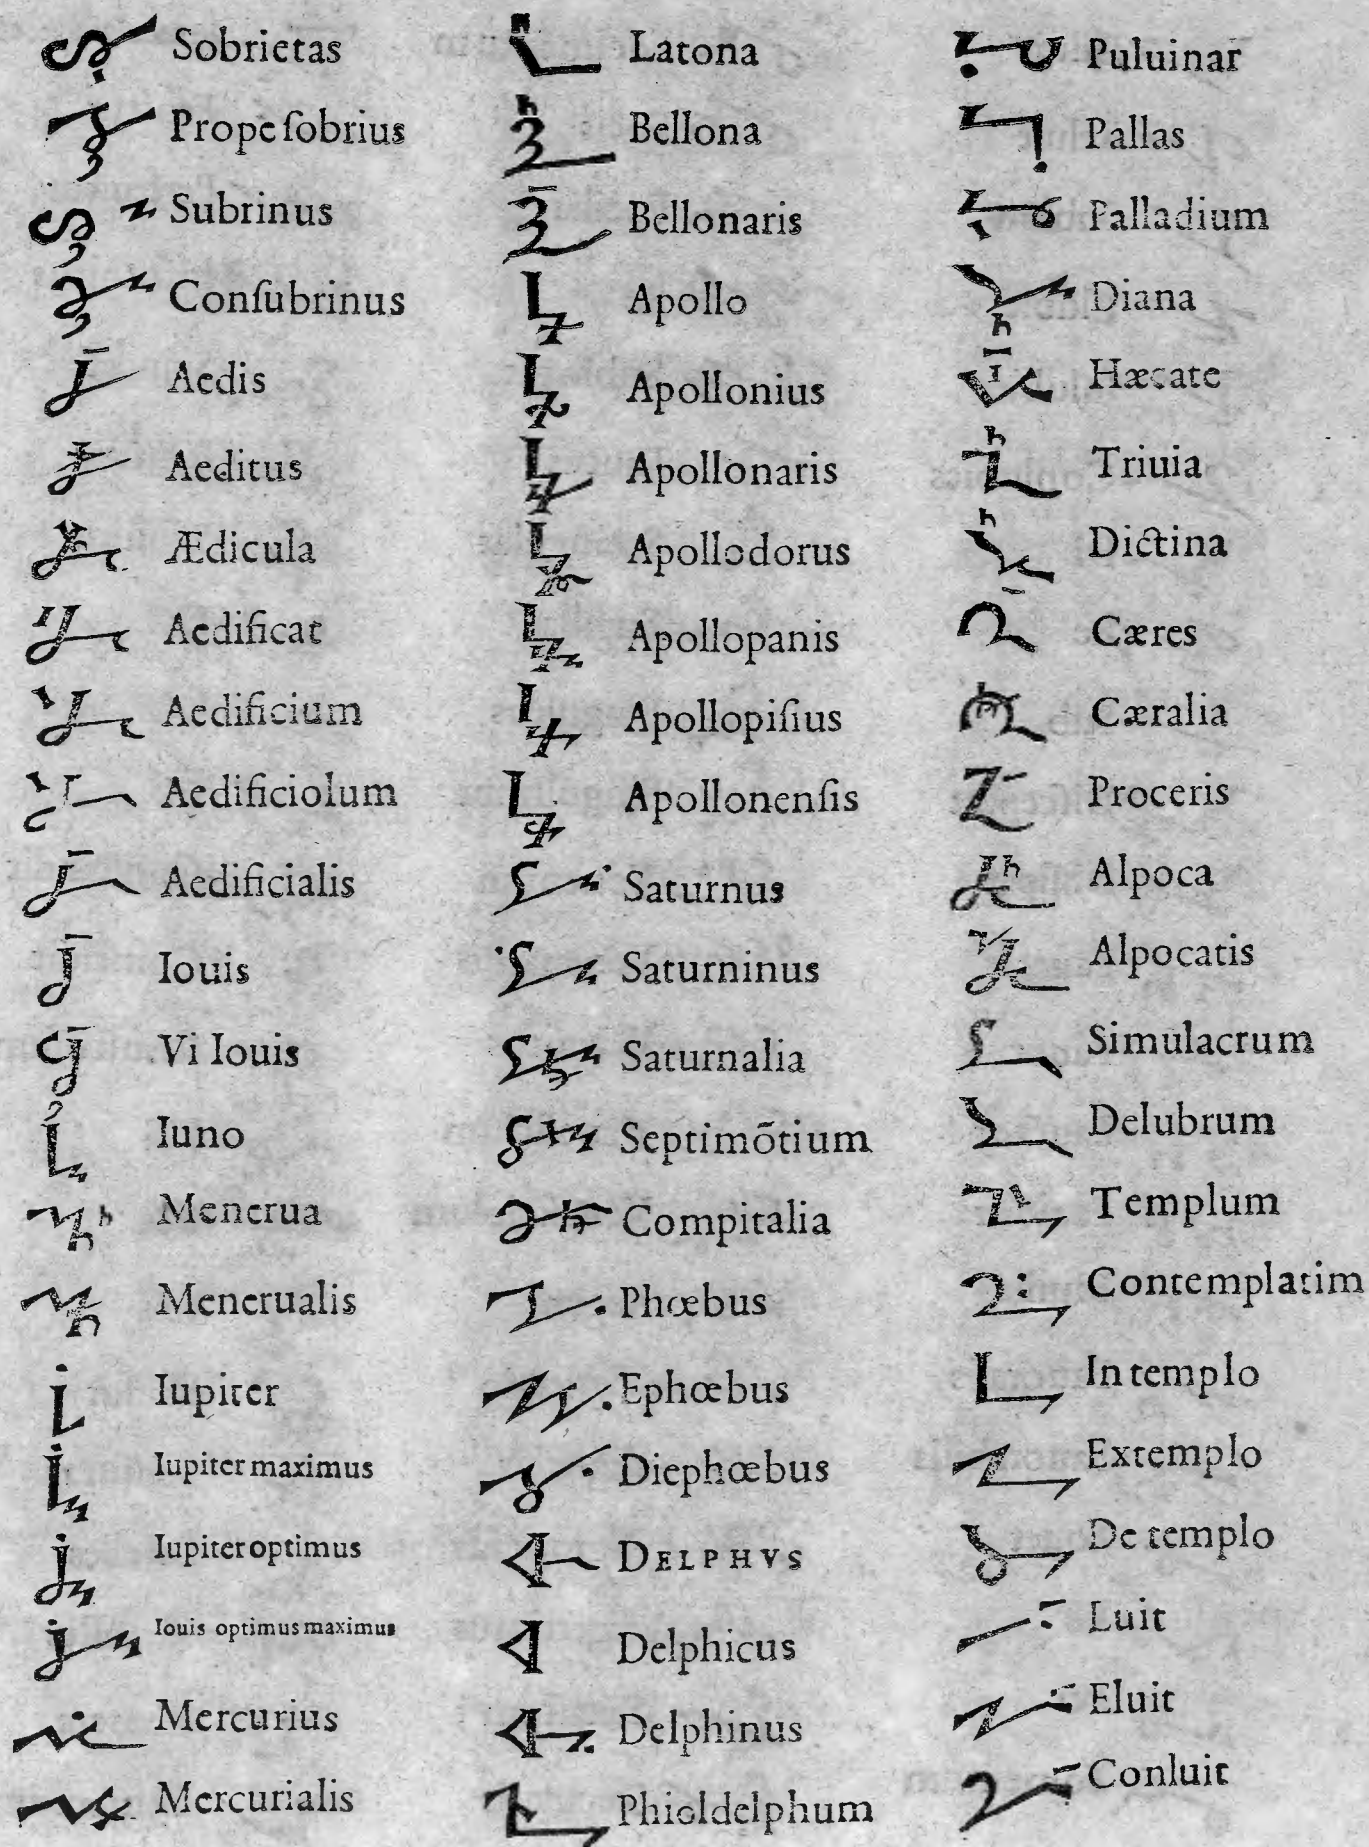 Sobrietas
Prope ſobrius
Subrinus
Conſubrinus
Aedis
Aeditus
Ædicula
Aedificat
Aedificium
Aedificiolum
Aedificialis
Iouis
Vi Iouis
Iuno
Menerua
Menerualis
Iupiter
Iupiter maximus
Iupiter optimus
Iouis optimus maximus
Mercurius
Mercurialis
Latona
Bellona
Bellonaris
Apollo
Apollonius
Apollonaris
Apollodorus
Apollopanis
Apollopiſius
Apollonenſis
Saturnus
Saturninus
Saturnalia
Septimōtium
Compitalia
Phœbus
Ephœbus
Diephœbus
DELPHVS
Delphicus
Delphinus
Phioldelphum
Puluinar
Pallas
Palladium
Diana
Hæcate
Triuia
Dictina
Cæres
Cæralia
Proceris
Alpoca
Alpocatis
Simulacrum
Delubrum
Templum
Contemplatim
In templo
Extemplo
De templo
Luit
Eluit
Conluit